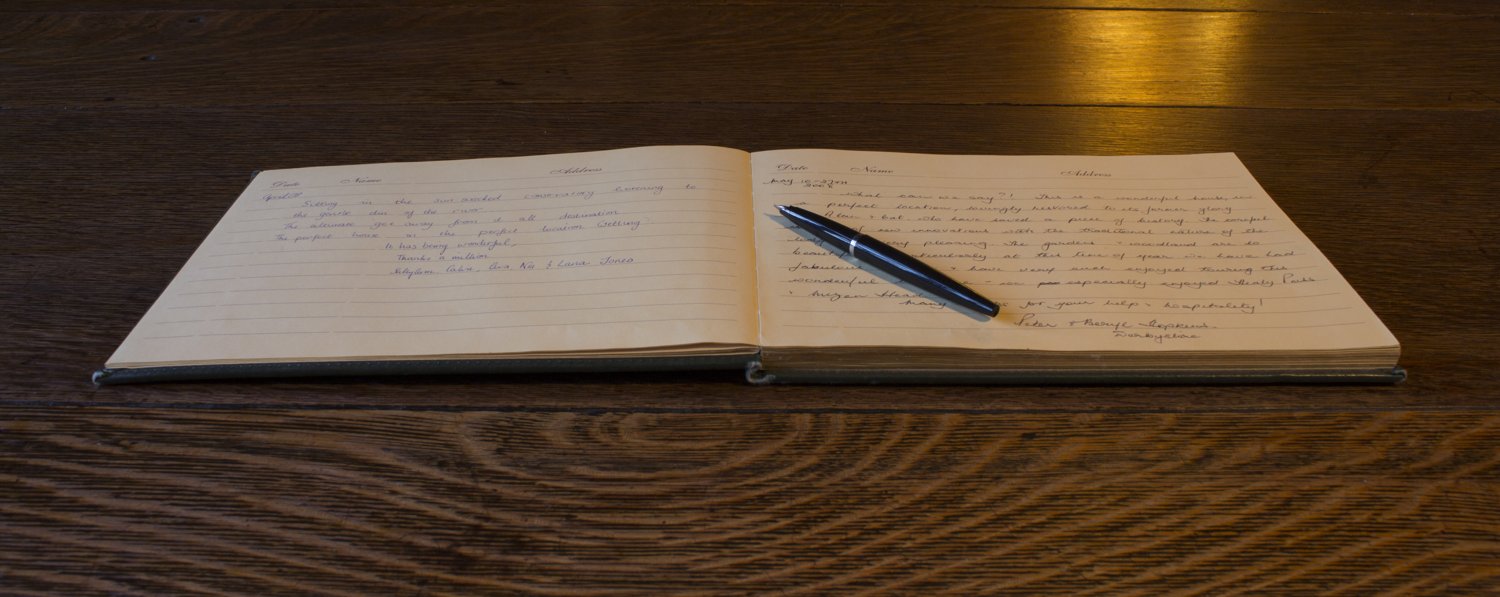 Date Name Address
April
Sitting in the sun soaked conservatory listening to
the gentle din of the
The ultimate get away from it all destination
The perfect house in the perfect location. Nothing
It has being wonderful,
Thanks a million
& Lana Jones
Date Name Address
May 10-27TH
What can we say?! This is a wonderful house, in
a perfect location, lovingly restored to its former glory
& Pat who have saved a piece of history. The careful
of new innovations with the traditional nature of the
very pleasing. The gardens & woodland are so
at this time of year. We have had
fabulous & have very much enjoyed touring this
wonderful we especially enjoyed Healy Pass
& Mizen Head
Many for your help & hospitality!
Peter & Beryl Hopkins.
Derbyshire